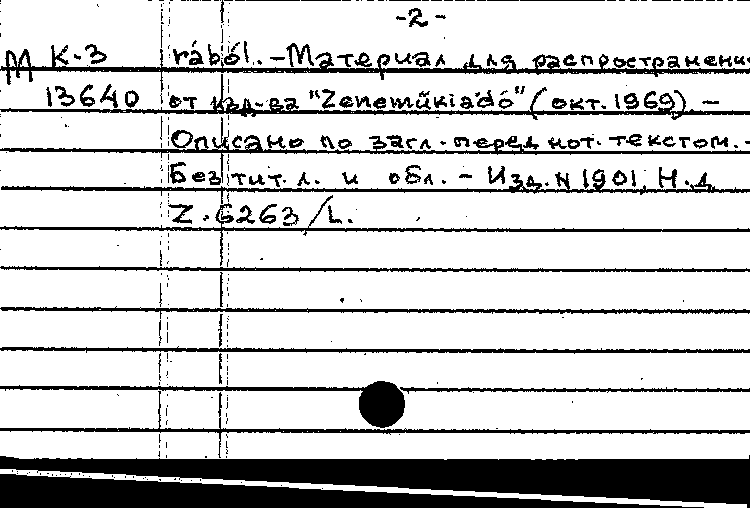 -2-
М К-3 rából. - Материал для распространени
13640 от изд-ва "Zeneműkiadó" (окт. 1969). -
Описано по загл. перед нот. текстом. -
Без тит. л. и обл. - Изд. N 1901, Н. д.
Z. 6263/L.